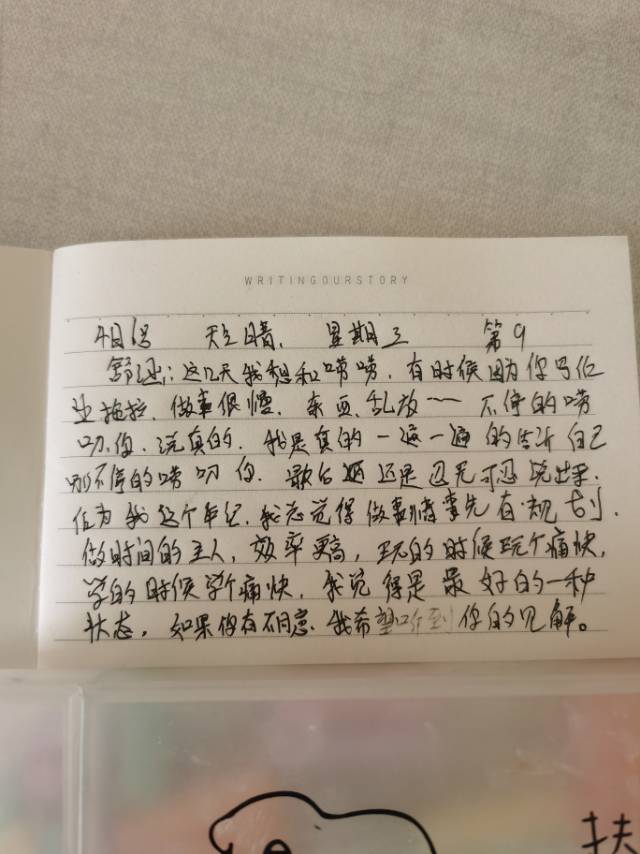 WRITINGOURSTORY
4月6号 天气晴. 星期三 第9
舒这几天我想和唠唠. 有时候因为你写作
业拖拉. 做事很慢. 东西乱放…… 不停的唠
叨你. 说真的. 我是真的一遍一遍的告诉自己
别不停的唠叨你. 最后还是忍无可忍说出来.
作为我这个年纪. 我总觉得做事情事先有规划.
做时间的主人, 效率更高, 玩的时候玩个痛快,
学的时候学个痛快. 我觉得是最好的一种
状态. 如果你有不同意. 我希望听到你的见解。
扶